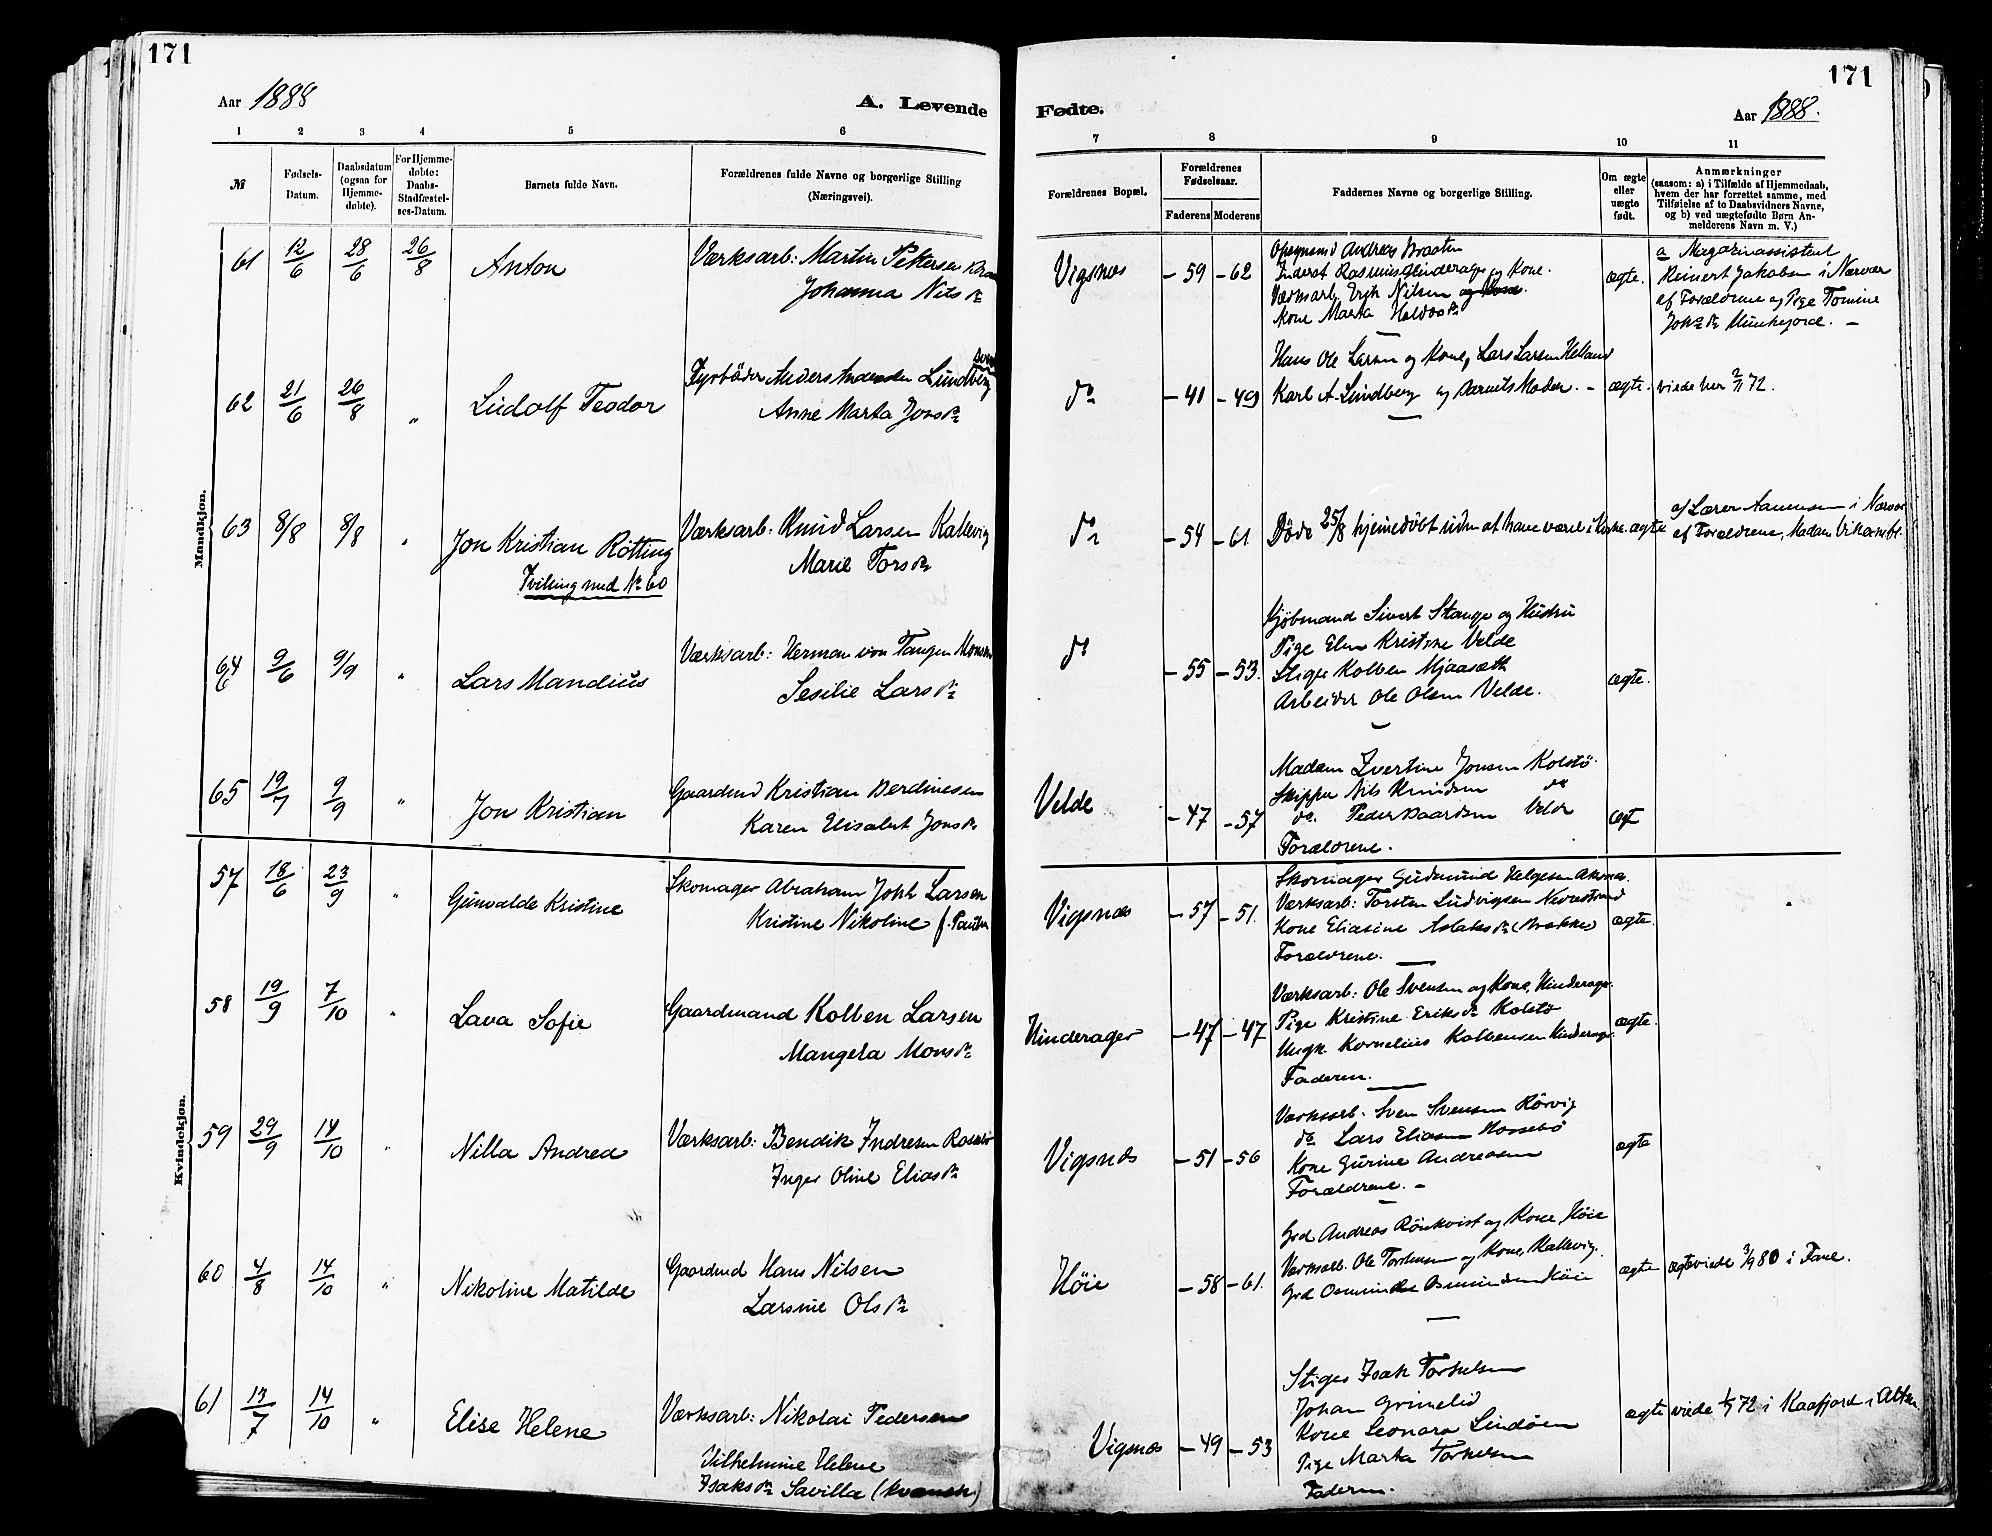 171
171
Aar 1888
A. Levende
Fødte.
Aar 1888.
1 2 3 4 5 6
7 8 9 10 11
№
Fødsels-
Datum.
Daabsdatum
(ogsaa for
Hjemme-
døbte).
For Hjemme-
døbte:
Daabs-
Stadfæstel-
ses-Datum.
Barnets fulde Navn.
Forældrenes fulde Navne og borgerlige Stilling
(Næringsvei).
Forældrenes Bopæl.
Forældrenes
Fødselsaar.
Faderens Moderens
Faddernes Navne og borgerlige Stilling.
Om ægte
eller
uægte
født.
Anmærkninger
(saasom: a) i Tilfælde af Hjemmedaab,
hvem der har forrettet samme, med
Tilføielse af to Daabsvidners Navne,
og b) ved uægtefødte Børn An-
melderens Navn m. V.)
Mandkjøn.
61 12/6 28/6 26/8 Anton
Værksarb: Martin Pettersen
Johanna Nilsdr
Vigsnæs - 59 - 62
Andreas Braaten
Rasmus Hinderager og Kone.
Værksarb. Erik Nilsen og Kone.
Kone Marta
ægte.
a Magazinassistent
Reinert Jakobsen i Nærvær
af Forældrene og Pige Tomine
Munkejord. -
62 21/6 26/8 " Ludolf Teodor
Fyrbøder Anders Lundberg
Anne Marta Jonsdr
do - 41 - 49
Hans Ole Larsen og Kone, Lars Larsen Helland
Karl A. Lindberg og Barnets Moder. -
ægte. viede her 2/11 72.
63 8/8 8/8 " Jon Kristian Rötting
Tvilling med No 60
Værksarb: Knud Larsen Kallevig
Marie Torsdr
do - 54 - 61.
Døde 25/8 hjemmedøbt uden at have været i Kirke. ægte
af Lærer Aanensen i Nærvær
af Forældrene, Madam
64 9/6 9/9 " Lars Mandius
Værksarb: Herman von Tangen
Sesilie Larsdr
do - 55 - 53.
Kjöbmand Sivert Stange og Hustru
Pige Elen Kristine Velde
Stiger Kolben Mjaasæth
Arbeider Ole Olsen Velde.
ægte.
65 19/7 9/9 " Jon Kristian
Gaardmd Kristian Berdinesen
Karen Elisabet Jonsdr
Velde - 47 - 57
Madam Ivertine Jonsen Kolstö.
Skipper Nils Knudsen do
do. Peder Baardsen Velde
Forældrene.
ægt
Kvindekjøn.
57 18/6 23/9 " Gunvalde Kristine
Skomager Abraham Joh. Larsen
Kristine Nikoline f. Paulsen
Vigsnæs - 57 - 51.
Skomager Gudmund Helgesen
Værksarb: Torsten Ludvigsen
Kone Eliasine Aslaksdr (Brekke)
Forældrene.
ægte.
58 19/9 7/10 " Lava Sofie
Gaardmand Kolben Larsen
Mangela Monsdr
Hinderager - 47 - 47
Værksarb: Ole Svensen og Kone, Hinderager
Pige Kristine Eriksdr Kolstö
Ungk. Kornelius Kolbensen Hinderager
Faderen.
ægte.
59 29/9 14/10 " Nilla Andrea
Værksarb: Bendik Indresen
Inger Oline Eliasdr
Vigsnæs - 51 - 56
Værksarb. Sven Svensen Rörvig
do Lars Eliasen
Kone Gurine Andreasen
Forældrene. -
ægte
60 4/8 14/10 " Nikoline Matilde
Gaardmd Hans Nilsen
Larsine Olsdr
Höie - 58 - 61.
Grd Andreas Rönkvist og Kone, Höie
Værksarb. Ole Torkelsen og Kone, Kallevig.
Grd Osmund Osmundsen Höie
ægte ægteviede 3/9 80 i Fane.
61 13/7 14/10 " Elise Helene
Værksarb: Nikolai Pedersen
Vilhelmine Helene
Isaksdr Savilla (kvænsk)
Vigsnæs - 49 - 53
Stiger Isak Torkelsen
Johan Grimelid
Kone Leonara Lindöen
Pige Marta Torkelsen
Faderen.
ægte viede 1/7 72 i Kaafjord i Alten